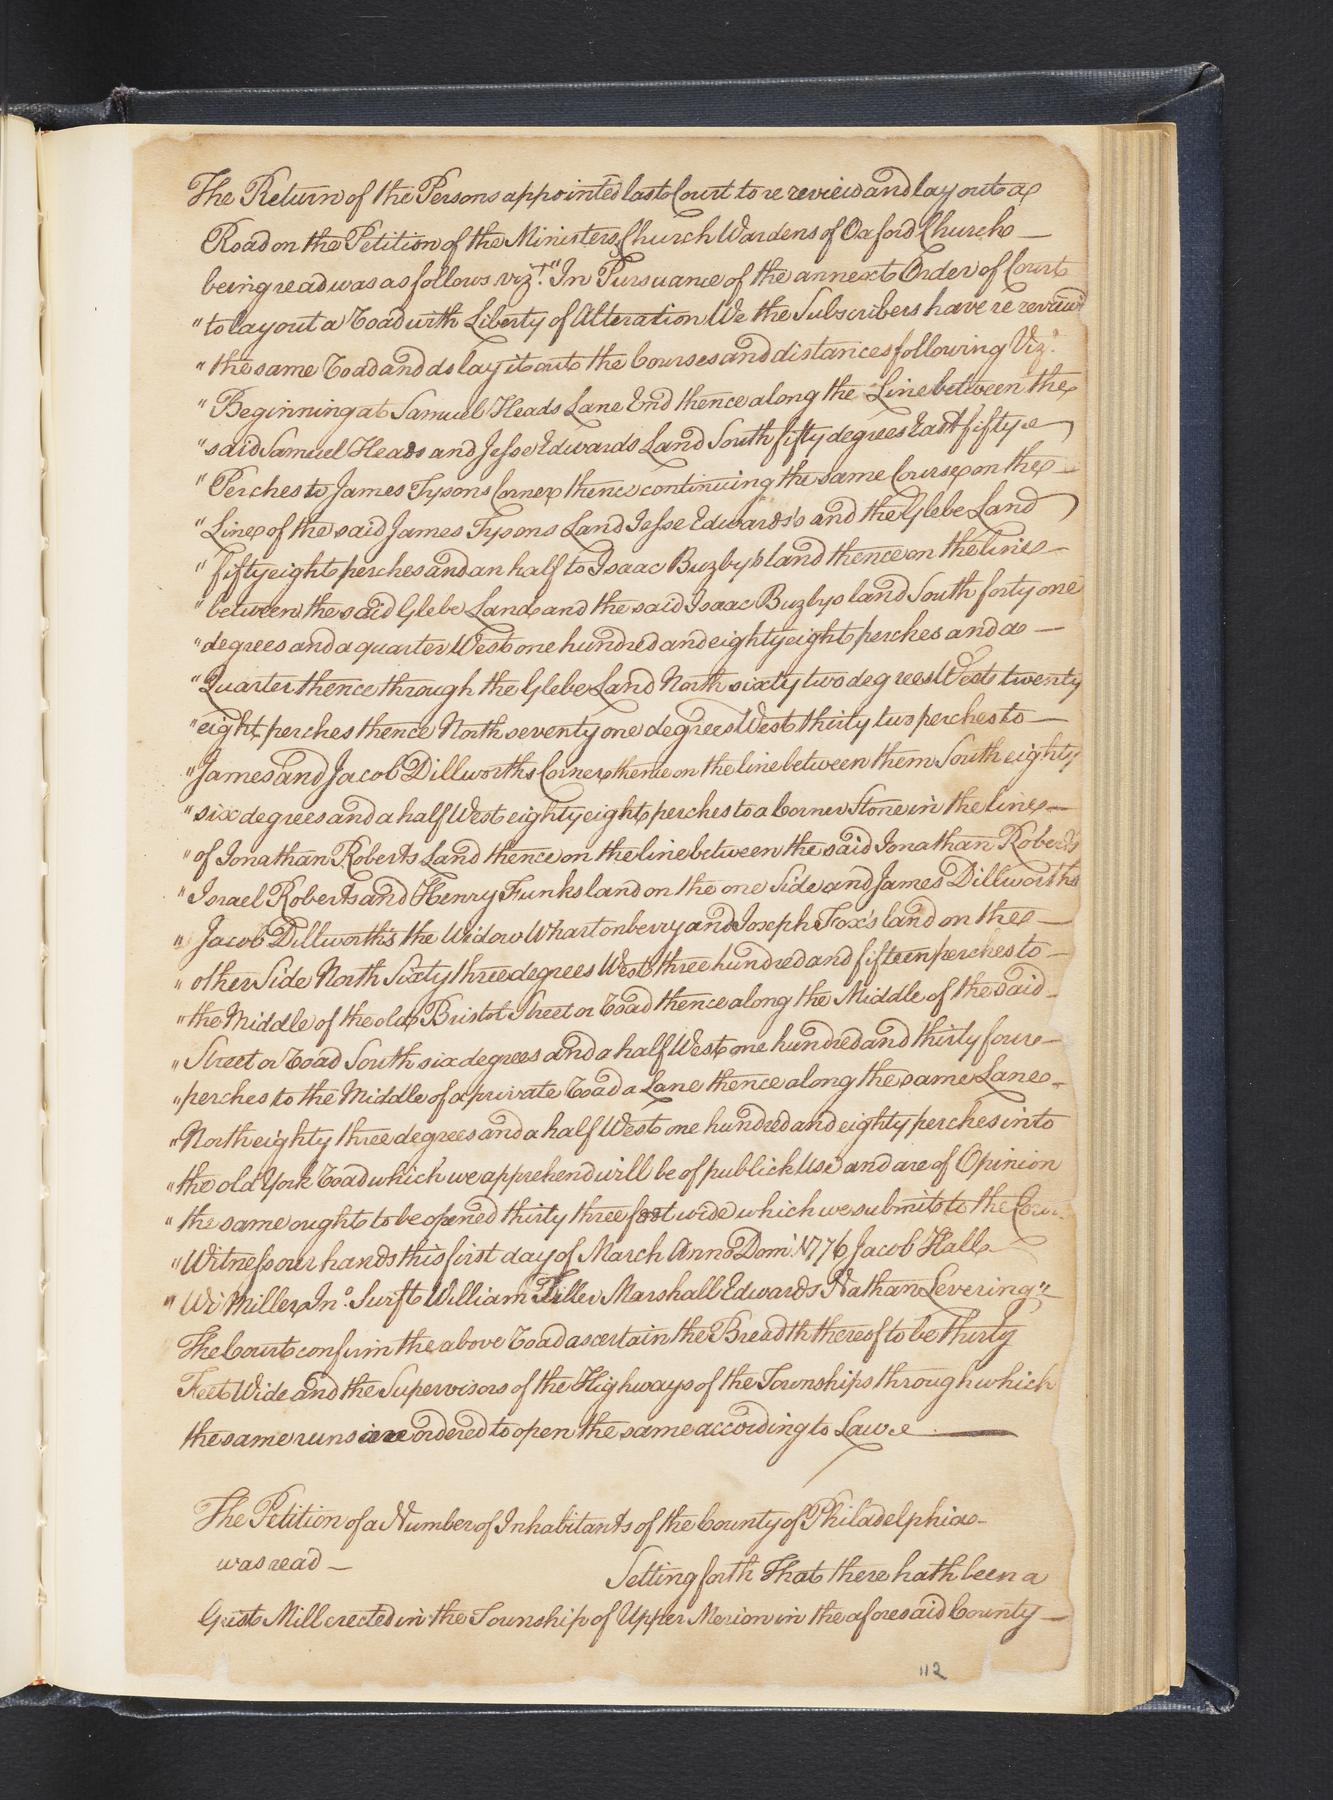 The Return of the Persons appointed last Court to re review and lay out a
Road on the Petition of the Ministers, Church Wardens of Oxford Church —
being read was as follows vizt. "In Pursuance of the annext Order of Court
"to lay out a Road with Liberty of Alteration We the Subscribers have re review'd
"the same Road and do lay it out the Courses and distances following Viz.
"Beginning at Samuel Heads Lane End thence along the Line between the
"said Samuel Heads and Jesse Edwards Land South fifty degrees East fifty
"Perches to James Tysons Corner thence continuing the same Course on the —
"Line of the said James Tysons Land Jesse Edwards's and the Glebe Land
"fifty eight perches and an half to Isaac Buzby's land thence on the lines —
"between the said Glebe Land and the said Isaac Buzbys land South forty one
"degrees and a quarter West one hundred and eighty eight perches and a —
"Quarter thence through the Glebe Land North sixty two degrees West twenty
"eight perches thence North seventy one degrees West thirty two perches to —
"James and Jacob Dillworths Corner thence on the line between them South eighty
"six degrees and a half West eighty eight perches to a Corner Stone in the lines —
"of Jonathan Roberts Land thence on the line between the said Jonathan Roberts
"Israel Roberts and Henry Funks land on the one Side and James Dillworths
"Jacob Dillworth's the Widow Whartonberry and Joseph Fox's land on the —
"other Side North Sixty three degrees West three hundred and fifteen perches to —
"the Middle of the old Bristol Street or Road thence along the Middle of the said —
"Street or Road South six degrees and a half West one hundred and thirty four —
"perches to the Middle of a private Road a Lane thence along the same Lane —
"North eighty three degrees and a half West one hundred and eighty perches into
"the old York Road which we apprehend will be of publick Use and are of Opinion
"the same ought to be opened thirty three foot wide which we submit to the Cour
"Witness our hands this first day of March Anno Dom: 1776 Jacob Hall
"Wm Miller Jno. Swift William Tiller Marshall Edwards Nathan Levering" —
The Court confirm the above Road ascertain the Breadth thereof to be thirty
Feet Wide and the Supervisors of the Highways of the Townships through which
the same runs are ordered to open the same according to Law —
The Petition of a Number of Inhabitants of the County of Philadelphia —
was read — Setting forth That there hath been a
Grist Mill erected in the Township of Upper Merion in the aforesaid County —
112